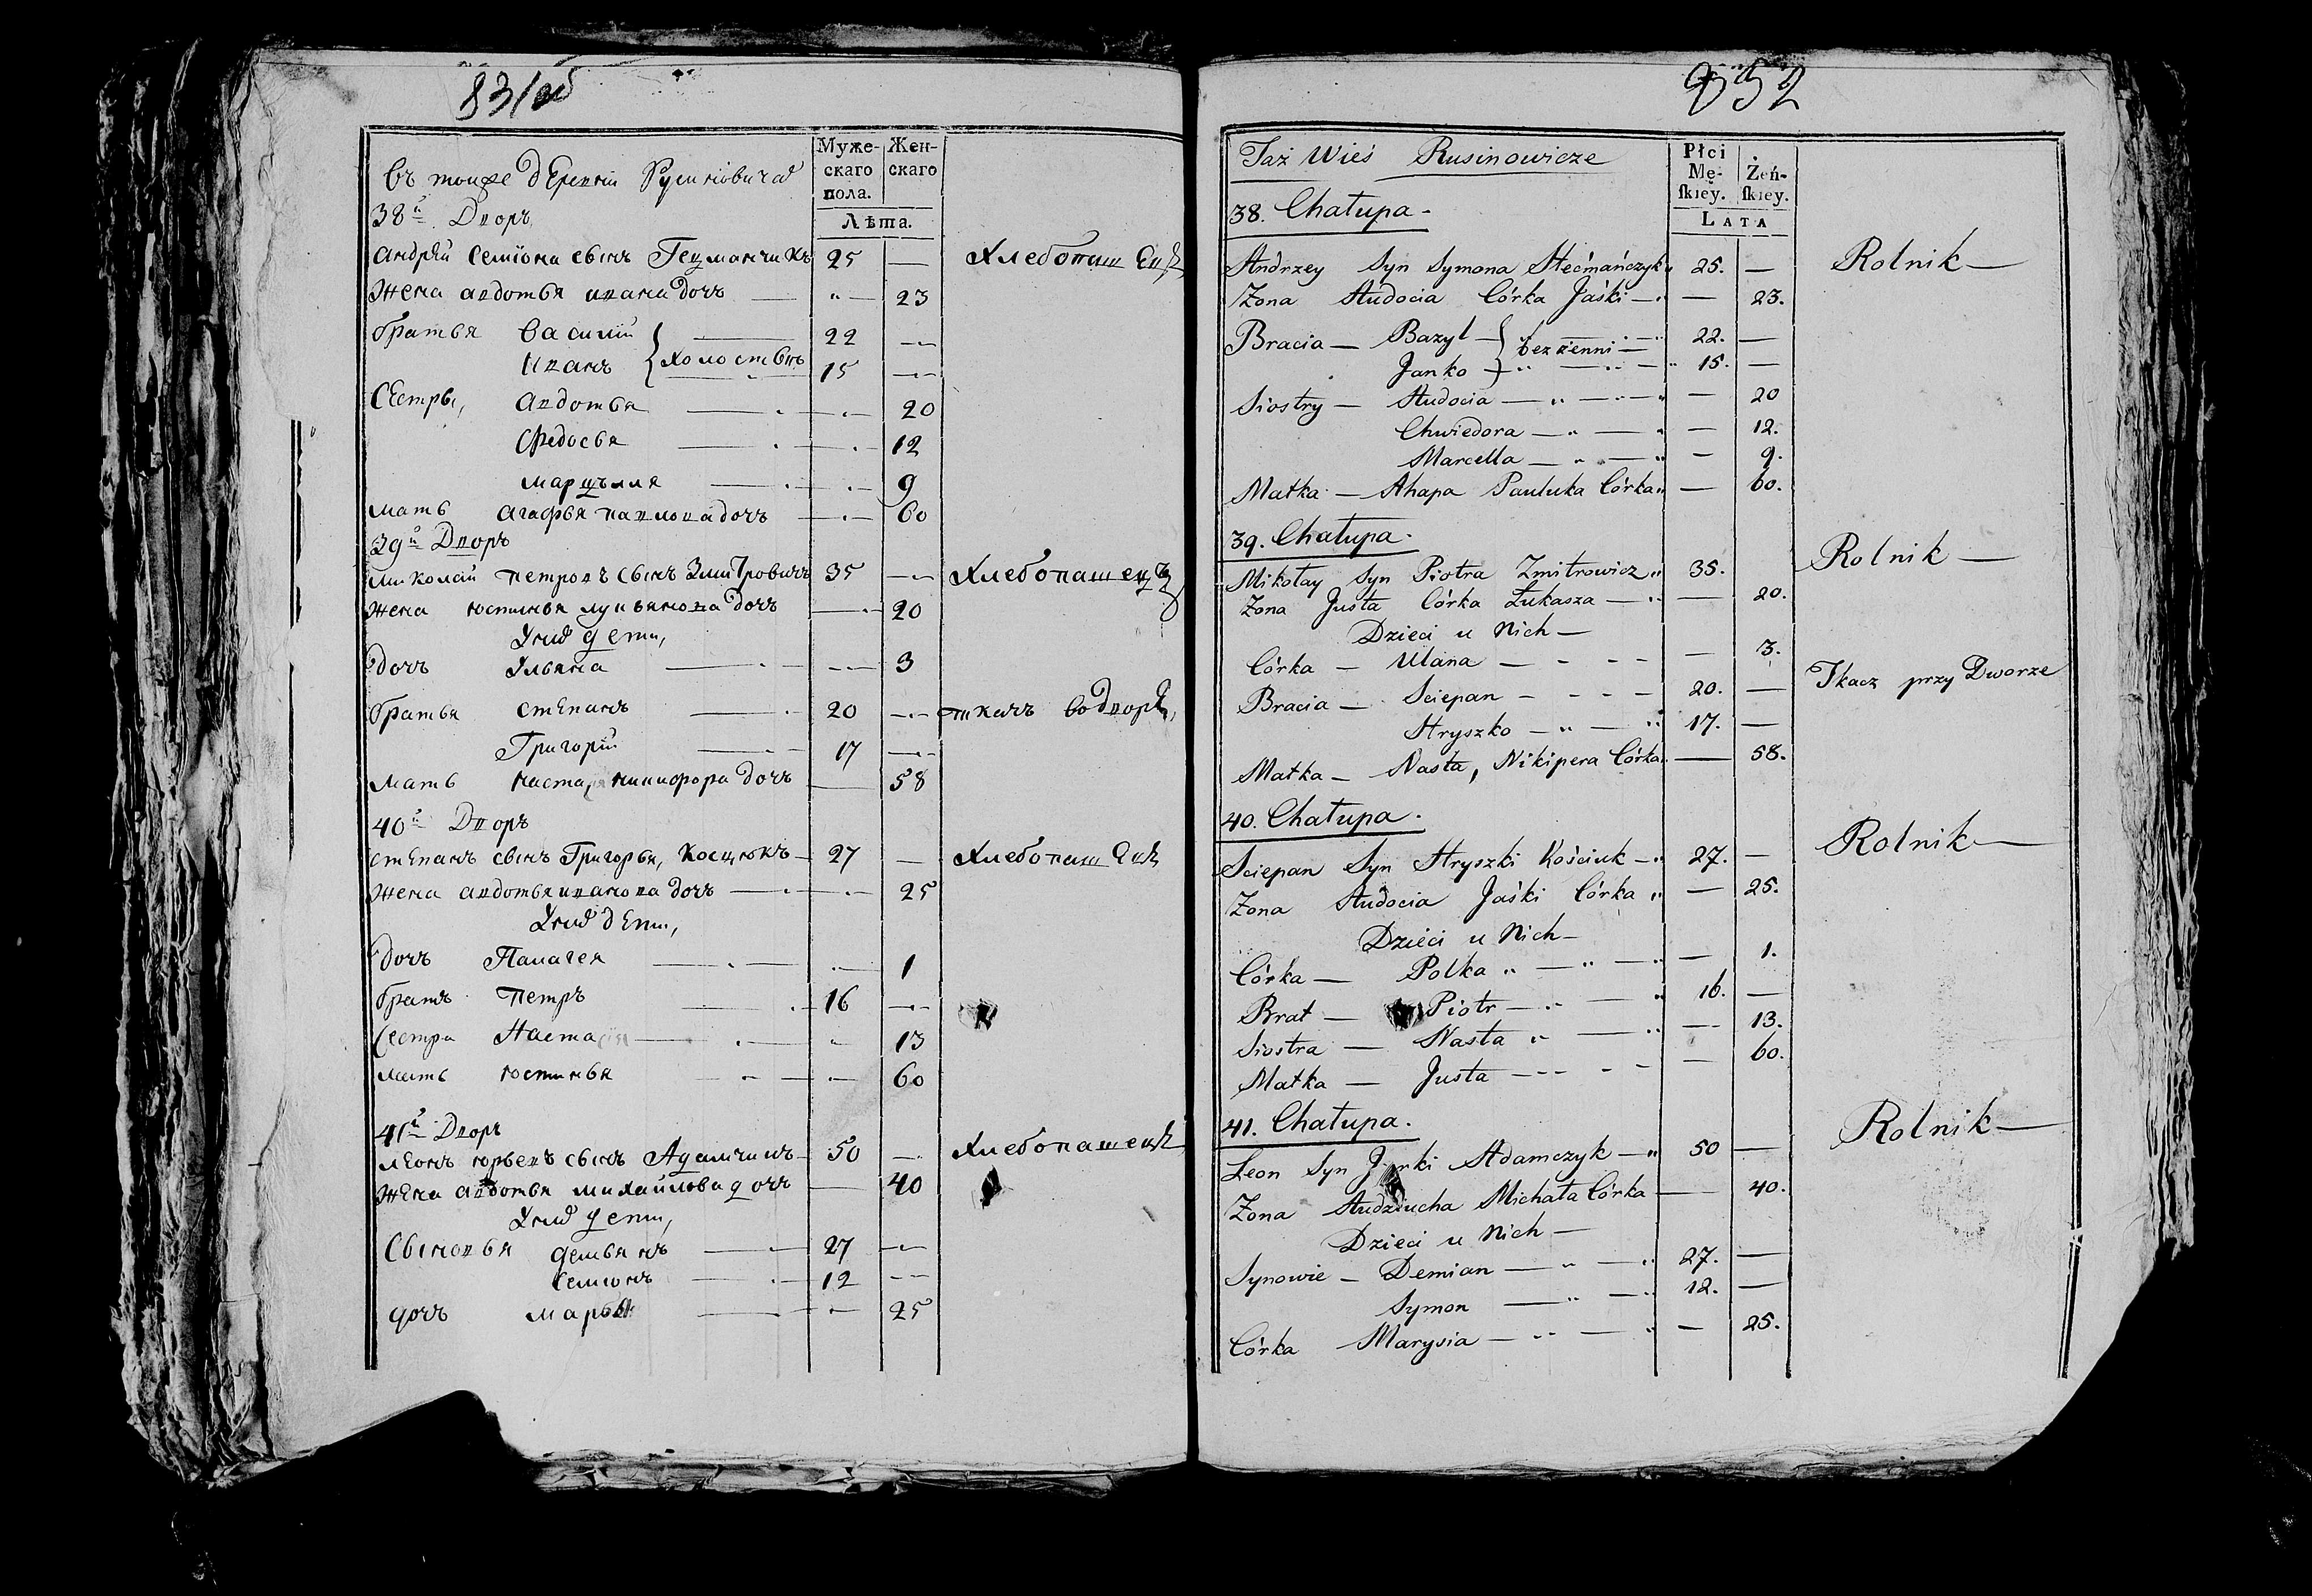 83/об
Муже-
скаго
пола.
Жен-
скаго
Лѣта.
въ тойже деревни Русиновичах
38й Дворъ
андрѣй семіона сынъ Гецманчикъ 25 — Хлебопашецъ
жена авдотья ивана дочь — 23
братья василій 22 —
иванъ } холостыхъ 15 —
Сестры, авдотья — 20
федосья — 12
марцѣлля — 9
мать агафья павлова дочь — 60
39й Дворъ
миколай петровъ сынъ Змитровичъ 35 — Хлебопашецъ
жена юстинья лукьянова дочь — 20
У них дети,
дочь Ульяна — 3
братья степанъ 20 — ткачъ во дворѣ,
Григорій 17 —
мать настася никифора дочь — 58
40й Дворъ
степанъ сынъ Григорья, Косцюкъ 27 — Хлебопашецъ
жена авдотья иванова дочь — 25
У них дети,
дочь Палагея — 1
братъ петръ 16 —
Сестра Настасія — 13
мать юстинья — 60
41й Дворъ
леонъ юрьевъ сынъ Адамчикъ 50 — Хлебопашецъ
жена авдотья михайлова дочь — 40
У них дети,
Сыновья демьянъ 27 —
семионъ 12 —
дочь марья — 25
952
Płci
Mę-
skiey.
Żeń-
skiey.
LATA
Taż Wieś Rusinowicze
38. Chałupa.
Andrzey Syn Symona Hećmańczyk 25. — Rolnik —
Zona Audocia Córka Jaśki — 23.
Bracia — Bazyl — } bezżenni — 22. —
Janko — 15. —
Siostry — Audocia — 20
Chwiedora — 12.
Marcella — 9.
Matka — Ahapa Pauluka Córka — 60.
39. Chałupa.
Mikołay Syn Piotra Zmitrowicz 35. Rolnik —
Zona Justa Córka Łukasza — 20.
Dzieci u Nich —
Córka — Ulana — 3.
Bracia — Sciepan — 20. — Tkacz przy Dworze
Hryszko — 17. —
Matka — Nasta, Nikipera Córka — 58.
40. Chałupa.
Sciepan Syn Hryszki Kościuk — 27. — Rolnik —
Zona Audocia Jaśki Córka — 25.
Dzieci u Nich —
Córka — Polka — 1.
Brat — Piotr — 16. —
Siostra — Nasta — 13.
Matka — Justa — 60.
41. Chałupa.
Leon Syn Jurki Adamczyk — 50 — Rolnik —
Zona Audziucha Michała Córka — 40.
Dzieci u Nich —
Synowie — Demian — 27. —
Symon — 12. —
Córka Marysia — 25.